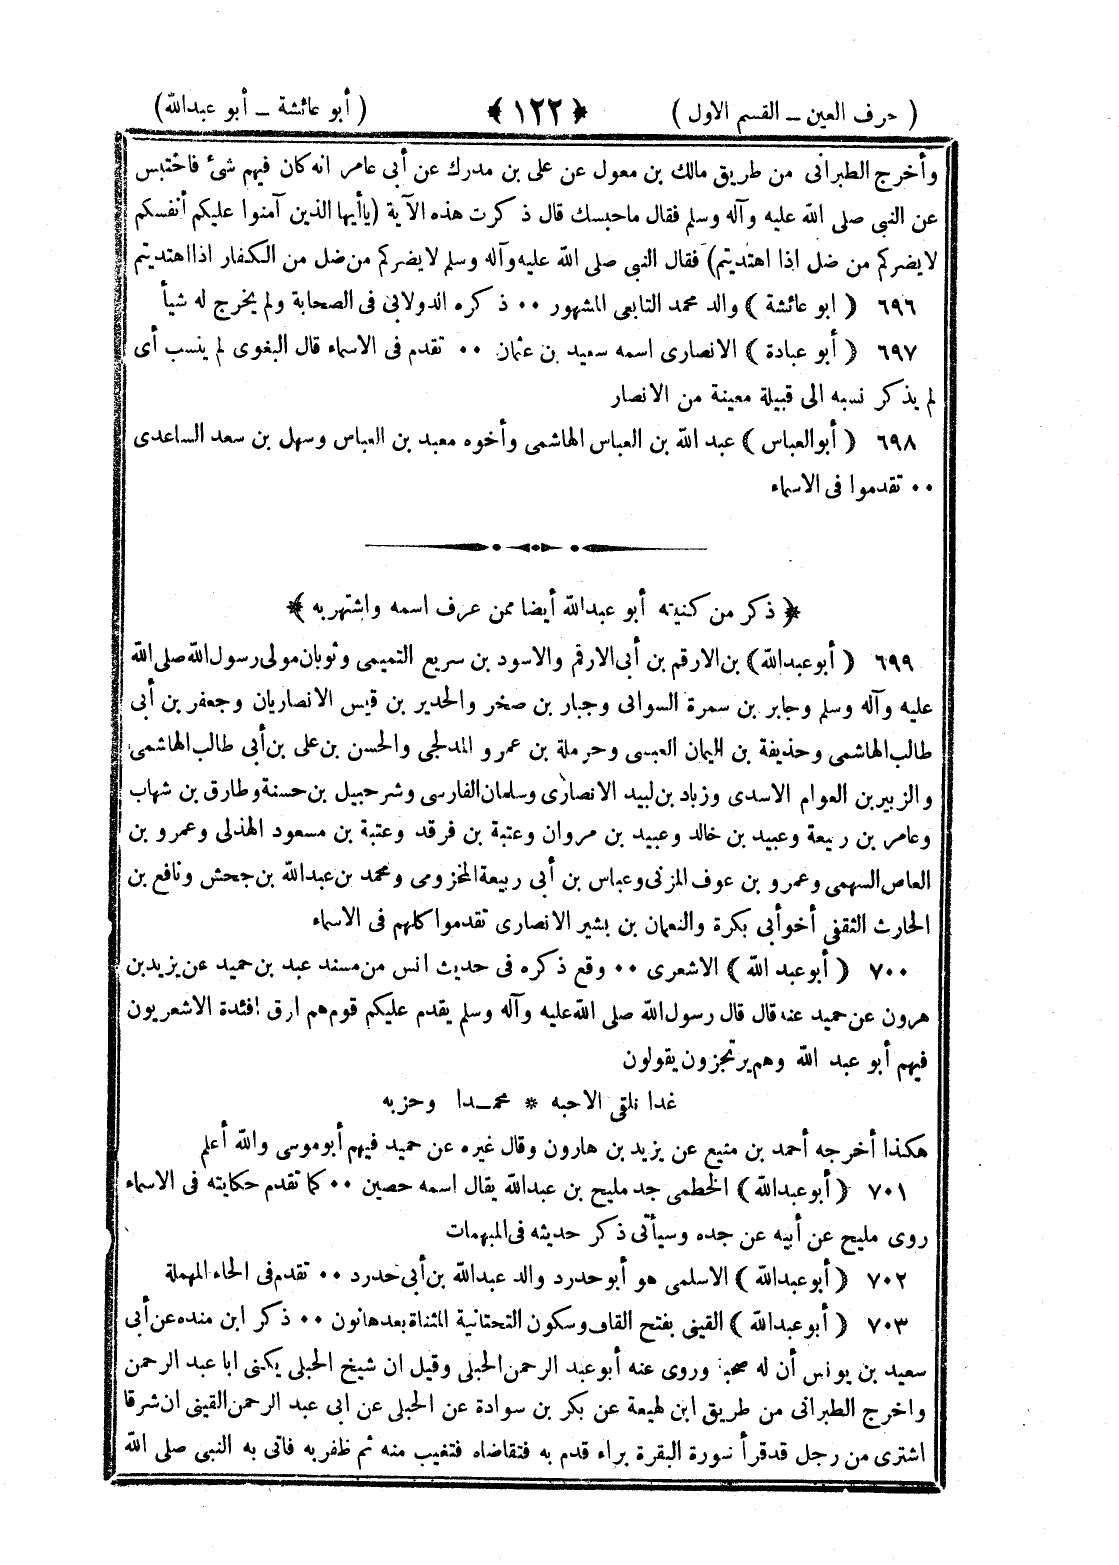 ( حرف العين ـ القسم الاول )
﴿ ١٢٢ ﴾
( أبو عائشة ـ أبو عبدالله )
وأخرج الطبرانى من طريق مالك بن معول عن على بن مدرك عن أبى عامر انه كان فيهم شئ فاحتبس
عن النبى صلى الله عليه وآله وسلم فقال ماحبسك قال ذكرت هذه الآية (ياأيها الذين آمنوا عليكم أنفسكم
لايضركم من ضل اذا اهتديتم) فقال النبى صلى الله عليه وآله وسلم لايضركم من ضل من الكفار اذا اهتديتم
٦٩٦ ( ابو عائشة ) والد محمد التابعى المشهور ٠٠ ذكره الدولابى فى الصحابة ولم يخرج له شيأ
٦٩٧ ( أبو عبادة ) الانصارى اسمه سعيد بن عثمان ٠٠ تقدم فى الاسماء قال البغوى لم ينسب أى
لم يذكر نسبه الى قبيلة معينة من الانصار
٦٩٨ ( أبو العباس ) عبد الله بن العباس الهاشمى وأخوه معبد بن العباس وسهل بن سعد الساعدى
٠٠ تقدموا فى الاسماء
﴿ ذكر من كنيته أبو عبدالله أيضا ممن عرف اسمه واشتهر به ﴾
٦٩٩ ( أبو عبدالله ) بن الارقم بن أبى الارقم والاسود بن سريع التميمى وثوبان مولى رسول الله صلى الله
عليه وآله وسلم وجابر بن سمرة السوائى وجبار بن صخر والحدير بن قيس الانصاريان وجعفر بن أبى
طالب الهاشمى وحذيفة بن اليمان العبسى وحرملة بن عمرو المدلجى والحسن بن على بن أبى طالب الهاشمى
والزبير بن العوام الاسدى وزياد بن لبيد الانصارى وسلمان الفارسى وشرحبيل بن حسنة وطارق بن شهاب
وعامر بن ربيعة وعبيد بن خالد وعبيد بن مروان وعتبة بن فرقد وعتبة بن مسعود الهذلى وعمرو بن
العاص السهمى وعمرو بن عوف المزنى وعباس بن أبى ربيعة المخزومى ومحمد بن عبدالله بن جحش ونافع بن
الحارث الثقفى أخو أبى بكرة والنعمان بن بشير الانصارى تقدموا كلهم فى الاسماء
٧٠٠ ( أبو عبد الله ) الاشعرى ٠٠ وقع ذكره فى حديث انس من مسند عبد بن حميد عن يزيد بن
هرون عن حميد عنه قال قال رسول الله صلى الله عليه وآله وسلم يقدم عليكم قوم هم ارق افئدة الاشعريون
فيهم أبو عبد الله وهم يرتجزون يقولون
غدا نلقى الاحبه * محمـدا وحزبه
هكذا أخرجه أحمد بن منيع عن يزيد بن هارون وقال غيره عن حميد فيهم أبو موسى والله أعلم
٧٠١ ( أبو عبدالله ) الخطمى جد مليح بن عبدالله يقال اسمه حصين ٠٠ كما تقدم حكايته فى الاسماء
روى مليح عن أبيه عن جده وسيأتى ذكر حديثه فى المبهمات
٧٠٢ ( أبو عبدالله ) الاسلمى هو أبو حدرد والد عبدالله بن أبى حدرد ٠٠ تقدم فى الحاء المهملة
٧٠٣ ( أبو عبدالله ) القينى بفتح القاف وسكون التحتانية المثناة بعدها نون ٠٠ ذكر ابن منده عن أبى
سعيد بن يونس أن له صحبة وروى عنه أبو عبد الرحمن الحبلى وقيل ان شيخ الحبلى يكنى ابا عبد الرحمن
واخرج الطبرانى من طريق ابن لهيعة عن بكر بن سوادة عن الحبلى عن ابى عبد الرحمن القينى ان شرقا
اشترى من رجل قد قرأ سورة البقرة براء قدم به فتقاضاه فتغيب منه ثم ظفر به فاتى به النبى صلى الله